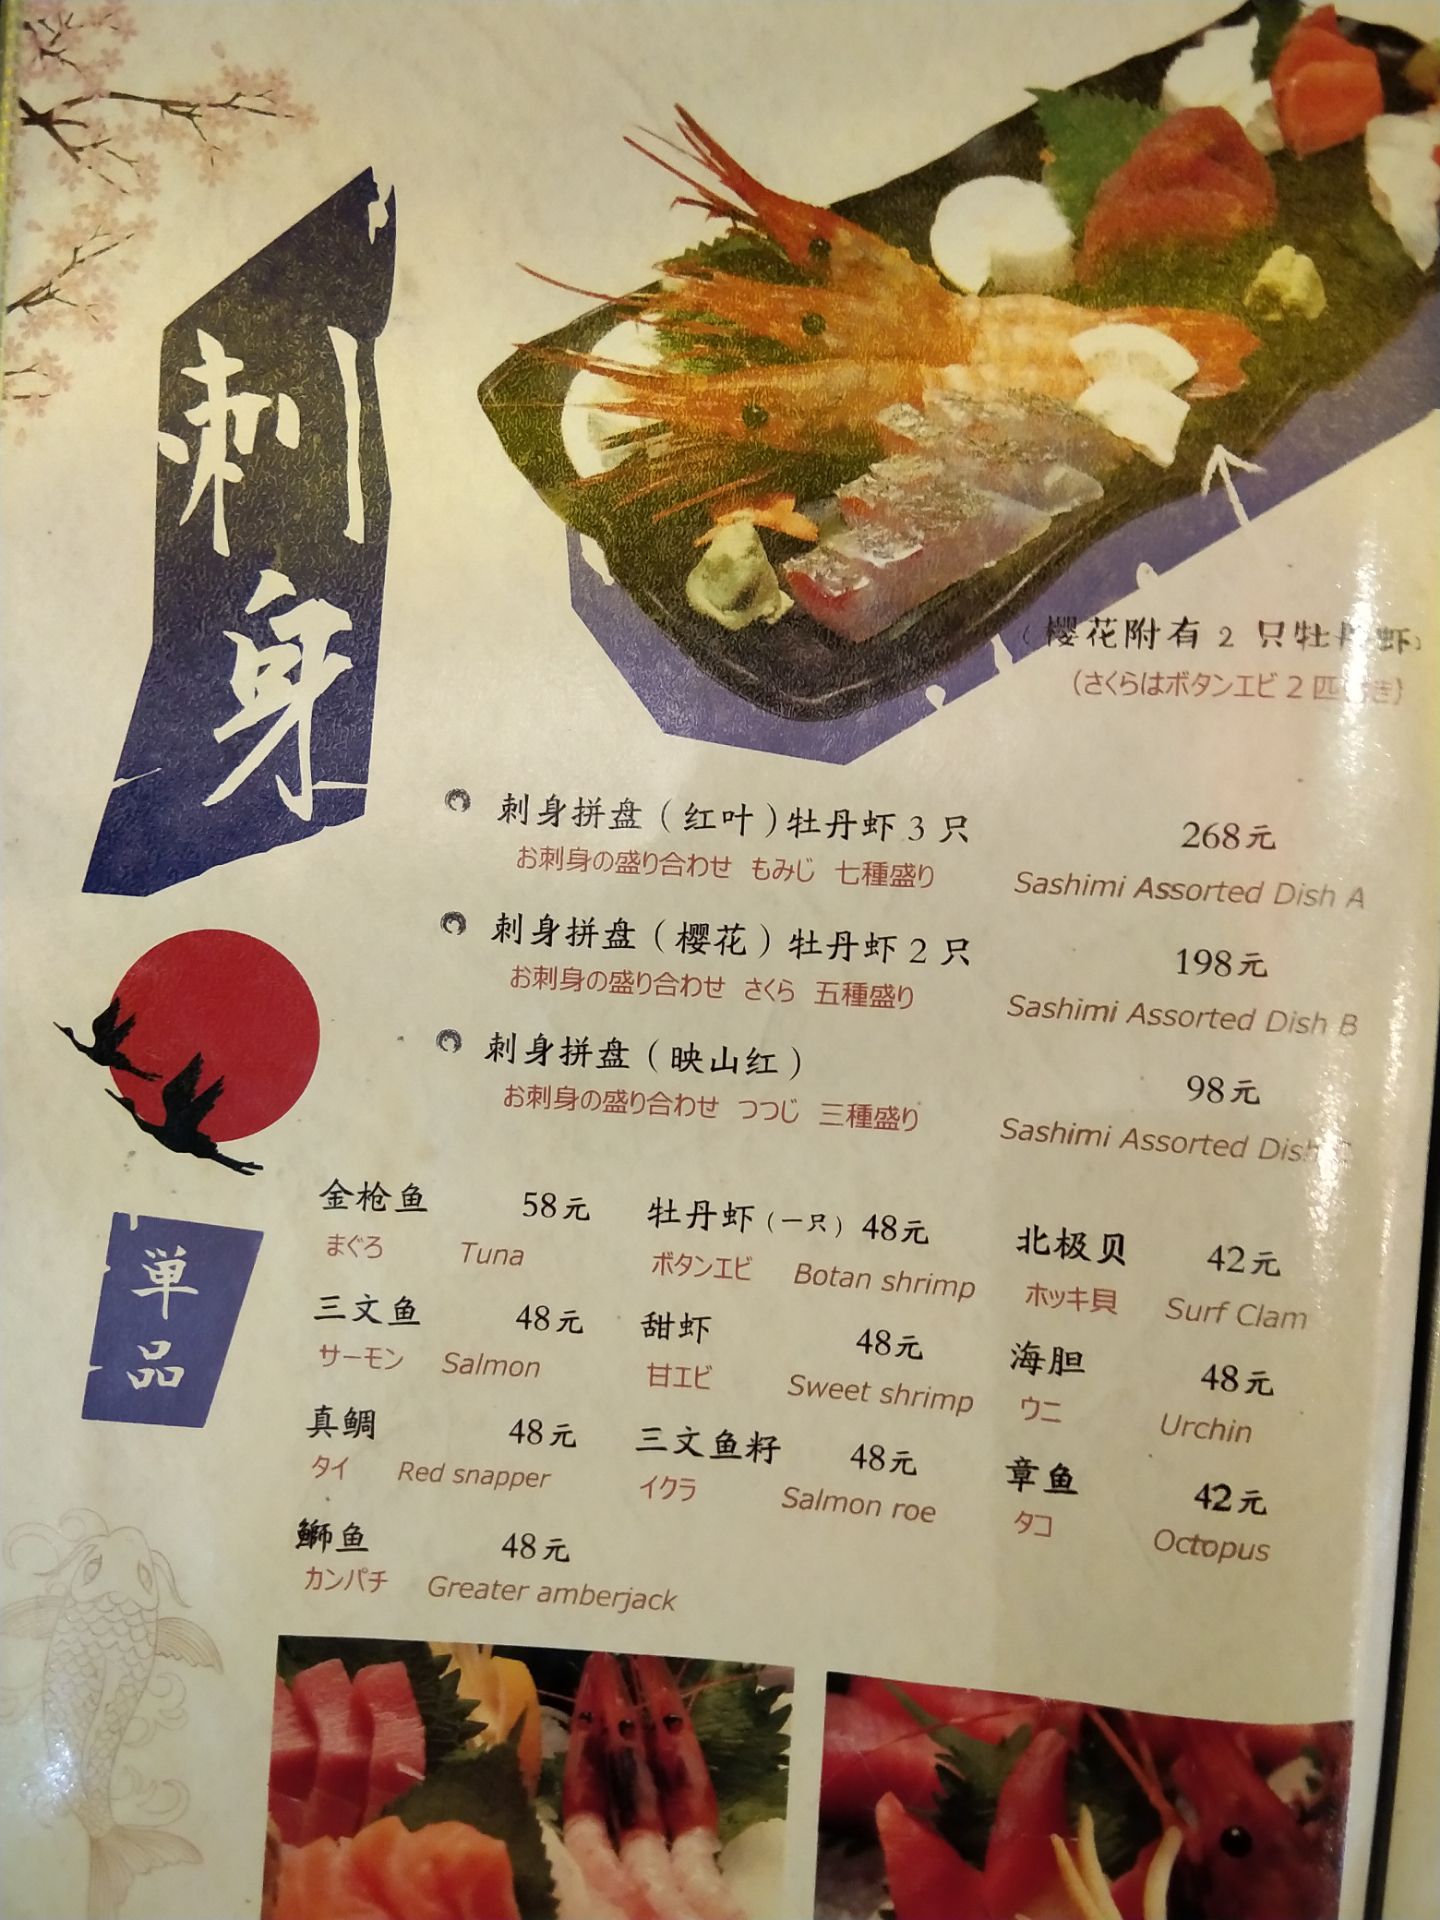 刺身
(樱花附有 2 只牡丹虾)
(さくらはボタンエビ 2 匹付き)
刺身拼盘(红叶)牡丹虾 3 只 268元
お刺身の盛り合わせ もみじ 七種盛り Sashimi Assorted Dish A
刺身拼盘(樱花)牡丹虾 2 只 198元
お刺身の盛り合わせ さくら 五種盛り Sashimi Assorted Dish B
刺身拼盘(映山红) 98元
お刺身の盛り合わせ つつじ 三種盛り Sashimi Assorted Dish
単品
金枪鱼 58元
まぐろ Tuna
三文鱼 48元
サーモン Salmon
真鲷 48元
タイ Red snapper
鰤鱼 48元
カンパチ Greater amberjack
牡丹虾(一只) 48元
ボタンエビ Botan shrimp
甜虾 48元
甘エビ Sweet shrimp
三文鱼籽 48元
イクラ Salmon roe
北极贝 42元
ホッキ貝 Surf Clam
海胆 48元
ウニ Urchin
章鱼 42元
タコ Octopus